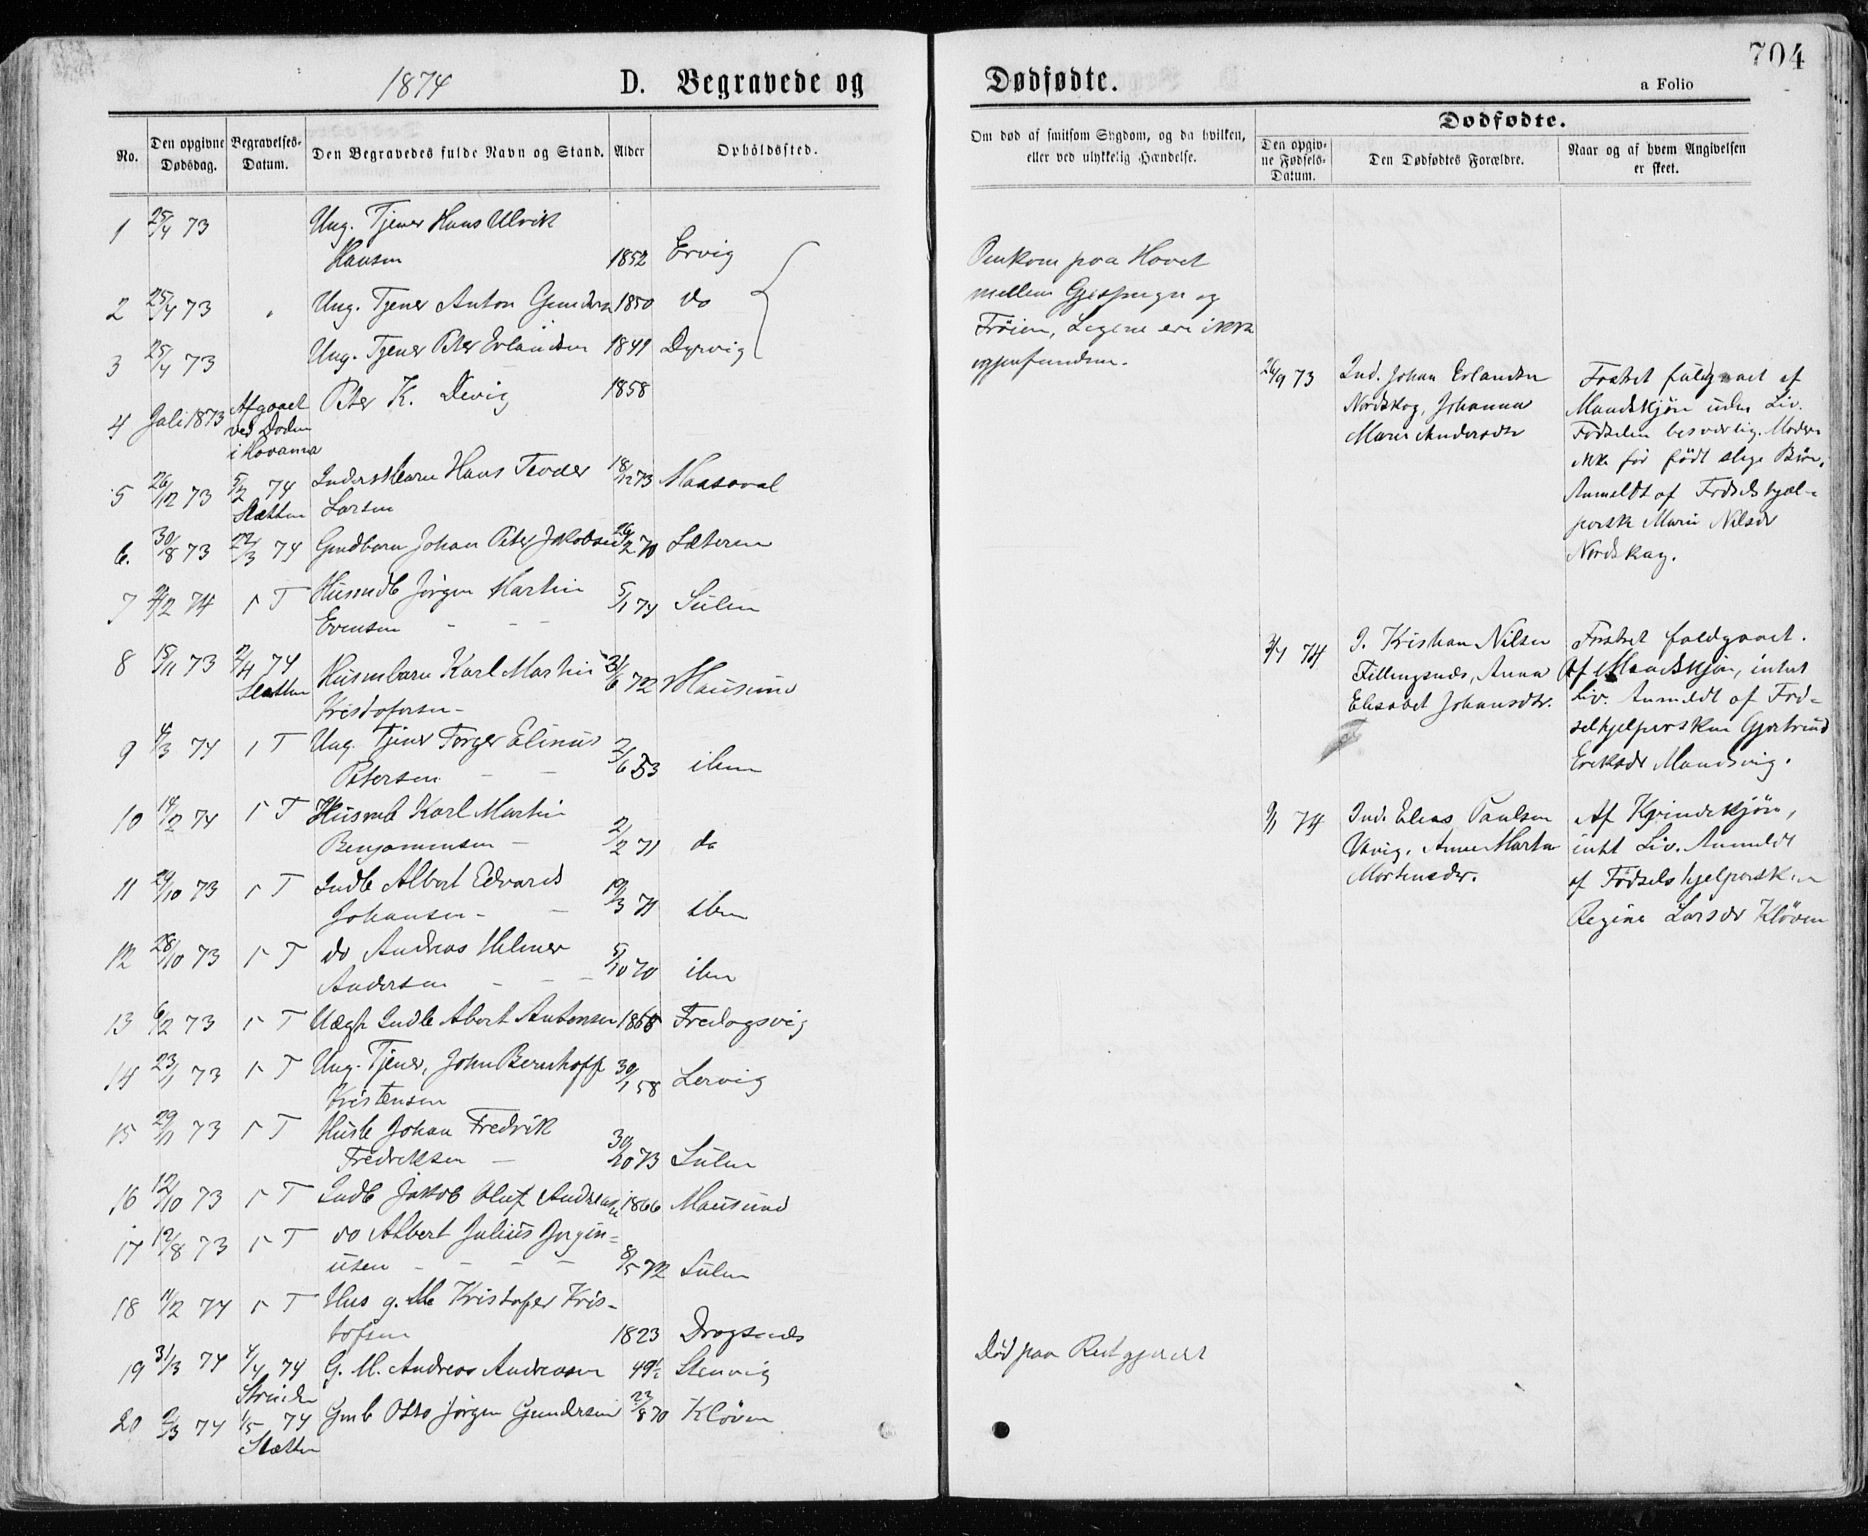 704
1874
D. Begravede og
Dødfødte.
a Folio
No.
Den opgivne Dødsdag.
Begravelses-Datum.
Den Begravedes fulde Navn og Stand.
Alder
Opholdssted.
Om død af smitsom Sygdom, og da hvilken, eller ved ulykkelig Hændelse.
Dødfødte.
Den opgivne Fødsels-Datum.
Den Dødfødtes Forældre.
Naar og af hvem Angivelsen er skeet.
1 25/4 73 Ung. Tjener Hans Ulrik
Hansen 1852 Ervig
2 25/4 73 Ung. Tjener Anton Gundersn 1850 do
3 25/4 73 Ung. Tjener Peter Erlandsen 1841 Dyrvig
4 Juli 1873 Afgaaet Peter K. Devig 1858
ved Døden
i Havanna
5 26/12 73 5/2 74 Inderstbarn Hans Teoder 18/12 73 Maasøval
Sletten Larsen
6. 30/8 73 22/3 74 Gmdbarn Johan Peter Jakobsen 26/2 70 Sæteren
7 2/2 74 1 T Husmdb Jørgen Martin 5/1 74 Sulen
Evensen
8 15/11 73 2/4 74 Husmbarn Karl Martin 21/6 72 Mausund
Sletten Kristofersen
9 4/3 74 1 T Ung. Tjener Torger Elinus
Petersen 2/6 53 ibm
10 14/2 74 1 T Husmb Karl Martin
Benjaminsen 2/2 71 do
11 24/10 73 1 T Indb Albert Edvard
Johansen 19/3 71 ibm
12 28/10 73 1 T do Andreas Hilmer
Andersen 5/10 70 ibm
13 6/2 73 1 T Uægt Indb Abert Antonsen 1868 Fredagsvig
14 23/1 73 1 T Ung. Tjener, John Bernhoff 30/1 58 Lervig
Kristensen
15 29/11 73 1 T Husb Johan Fredrik
Fredriksen 30/10 73 Sulen
16 12/10 73 1 T Indb Jakob Oluf Andreassen 1866 Mausund
17 12/8 73 1 T do Albert Julius Jørgin-
usen 8/5 72 Sulen
18 11/2 74 1 T Hus g. M Kristofer Kris-
tofsen 1823 Dragsnæs
19 31/3 74 4/4 74 G. M. Andreas Andreasen 49½ Stenvig
Strinden
20 2/3 74 1/5 74 Gmb Otto Jørgen Gundersen 23/8 70 Kløven
Sletten
Omkom paa Havet
mellem Gjæsingen og
Frøien, Ligene ere ikke
igjenfundne.
Død paa Reitgjerdet
26/9 73 Ind. Johan Erlandsen
Nordskag, Johanna
Marie Andersdtr
Fostret fuldgaaet af
Mandskjøn uden Liv.
Fødselen besværlig. Moderen
ikke før født slige Børn.
Anmeldt af Fødselshjæl-
perske Marie Nilsdr
Nordskag.
3/1 74 I. Kristian Nilsen
Fillingsnæs, Anna
Elisabet Johansdtr.
Fostret fuldgaaet.
Af Mandskjøn, intet
Liv. Anmeldt af Fød-
selhjelpersken Gjertrud
Eriksdr Mandsvig.
9/1 74 Ind. Elias Paulsen
Vavig. Anne Marta
Mortensdr.
Af Kvindekjøn,
intet Liv. Anmeldt
af Fødselshjelpersken
Regine Larsdr Kløven